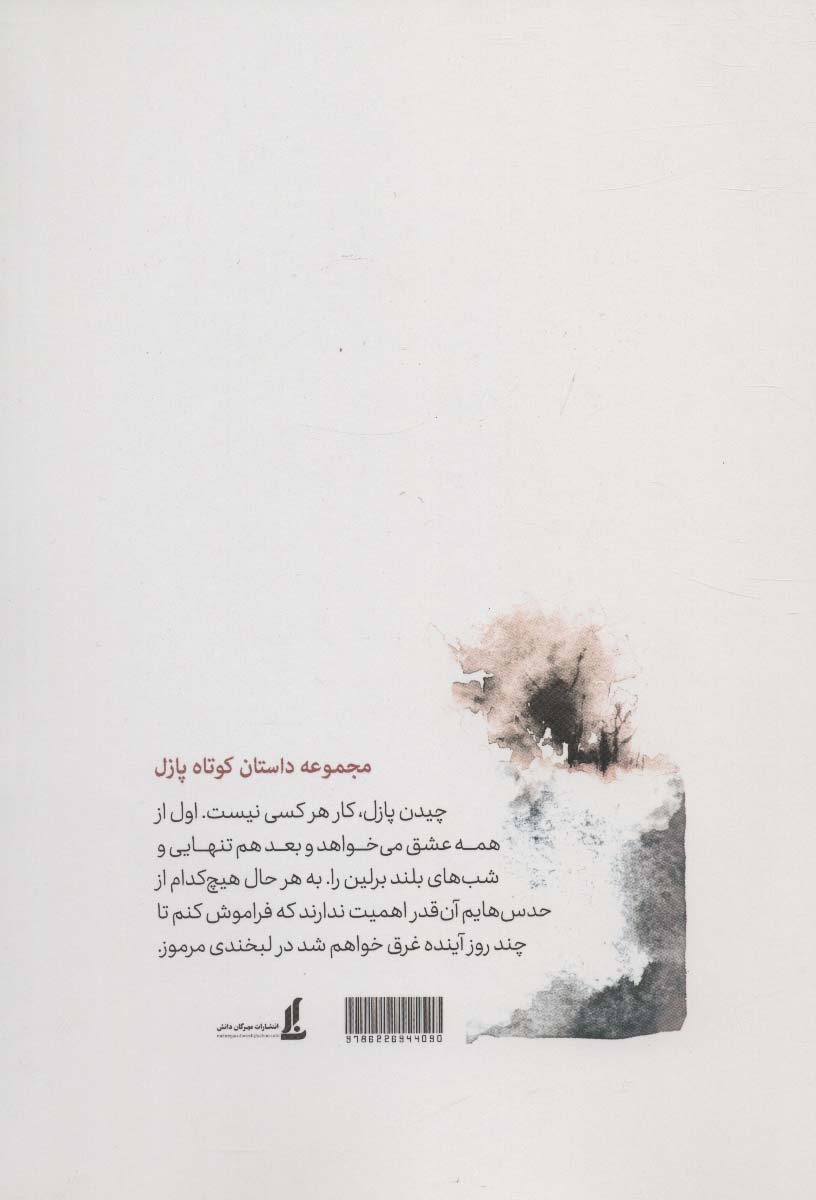 مجموعه داستان کوتاه پازل
چیدن پازل، کار هر کسی نیست. اول از
همه عشق می‌خواهد و بعد هم تنهایی و
شب‌های بلند برلین را. به هر حال هیچ‌کدام از
حدس‌هایم آن‌قدر اهمیت ندارند که فراموش کنم تا
چند روز آینده غرق خواهم شد در لبخندی مرموز.
انتشارات مهرگان دانش
9786226944090